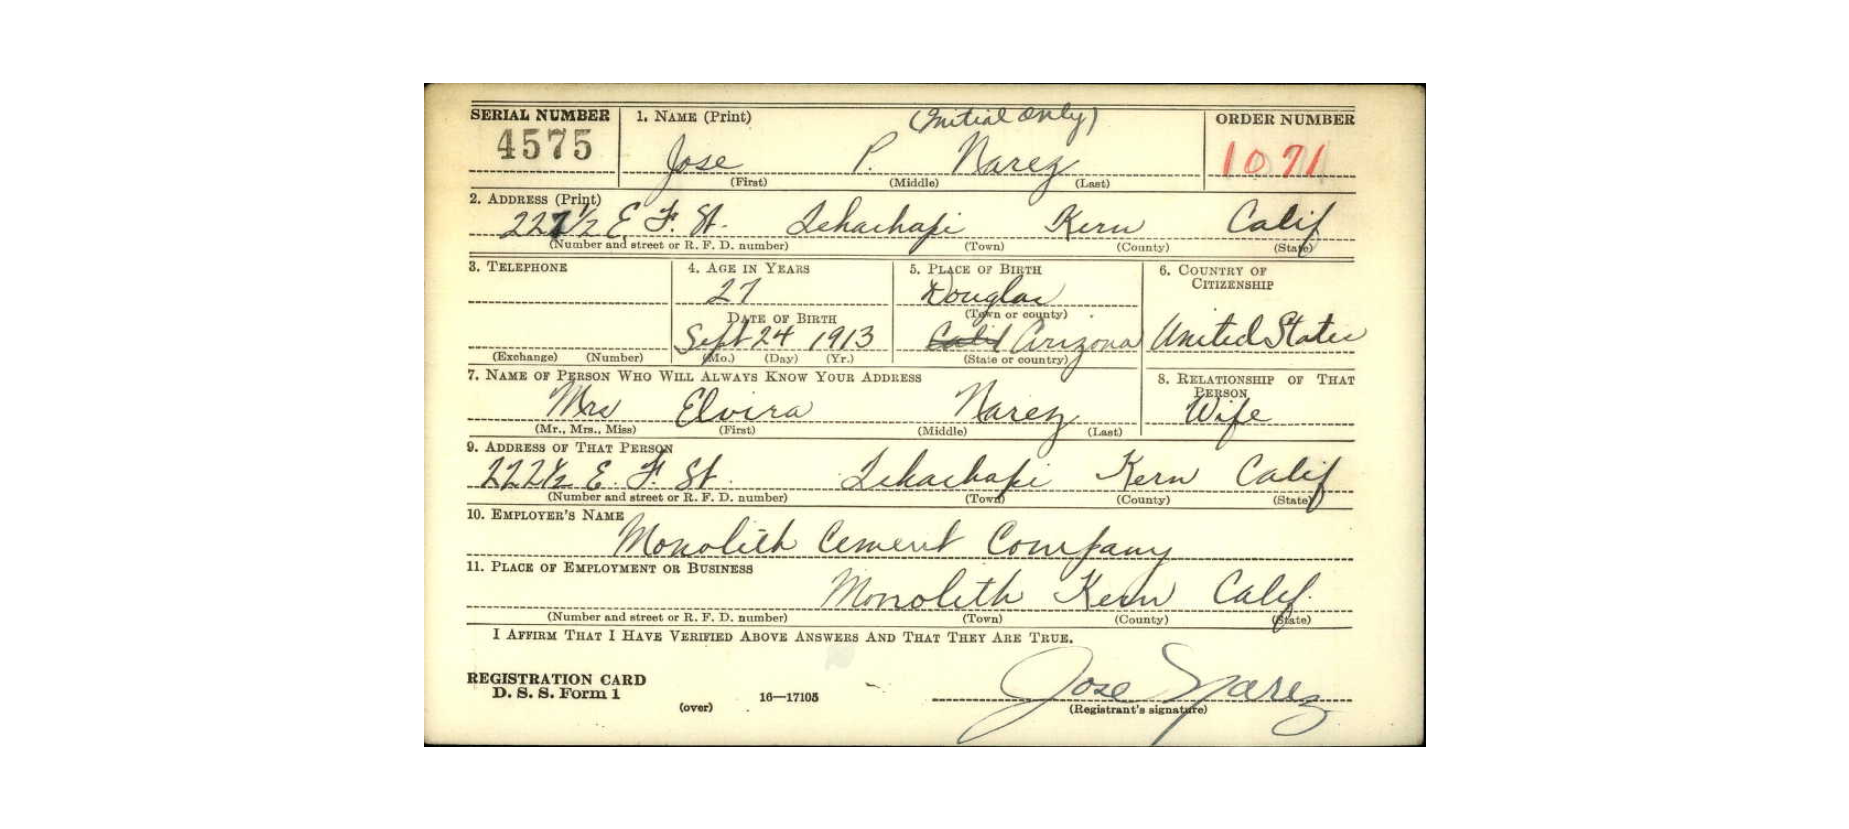 SERIAL NUMBER 1. NAME (Print) (Initial only) ORDER NUMBER
4575 Jose P. Narez 1071
(First) (Middle) (Last)
2. ADDRESS (Print)
222 1/2 E. F. St. Tehachapi Kern Calif
(Number and street or R. F. D. number) (Town) (County) (State)
3. TELEPHONE 4. AGE IN YEARS 5. PLACE OF BIRTH 6. COUNTRY OF CITIZENSHIP
27 Douglas
DATE OF BIRTH (Town or county)
Sept 24 1913 Calif Arizona United States
(Exchange) (Number) (Mo.) (Day) (Yr.) (State or country)
7. NAME OF PERSON WHO WILL ALWAYS KNOW YOUR ADDRESS 8. RELATIONSHIP OF THAT PERSON
Mrs Elvira Narez Wife
(Mr., Mrs., Miss) (First) (Middle) (Last)
9. ADDRESS OF THAT PERSON
222 1/2 E. F. St. Tehachapi Kern Calif
(Number and street or R. F. D. number) (Town) (County) (State)
10. EMPLOYER'S NAME
Monolith Cement Company
11. PLACE OF EMPLOYMENT OR BUSINESS
Monolith Kern Calif.
(Number and street or R. F. D. number) (Town) (County) (State)
I AFFIRM THAT I HAVE VERIFIED ABOVE ANSWERS AND THAT THEY ARE TRUE.
REGISTRATION CARD
D. S. S. Form 1 16—17105 Jose Narez
(over) (Registrant's signature)